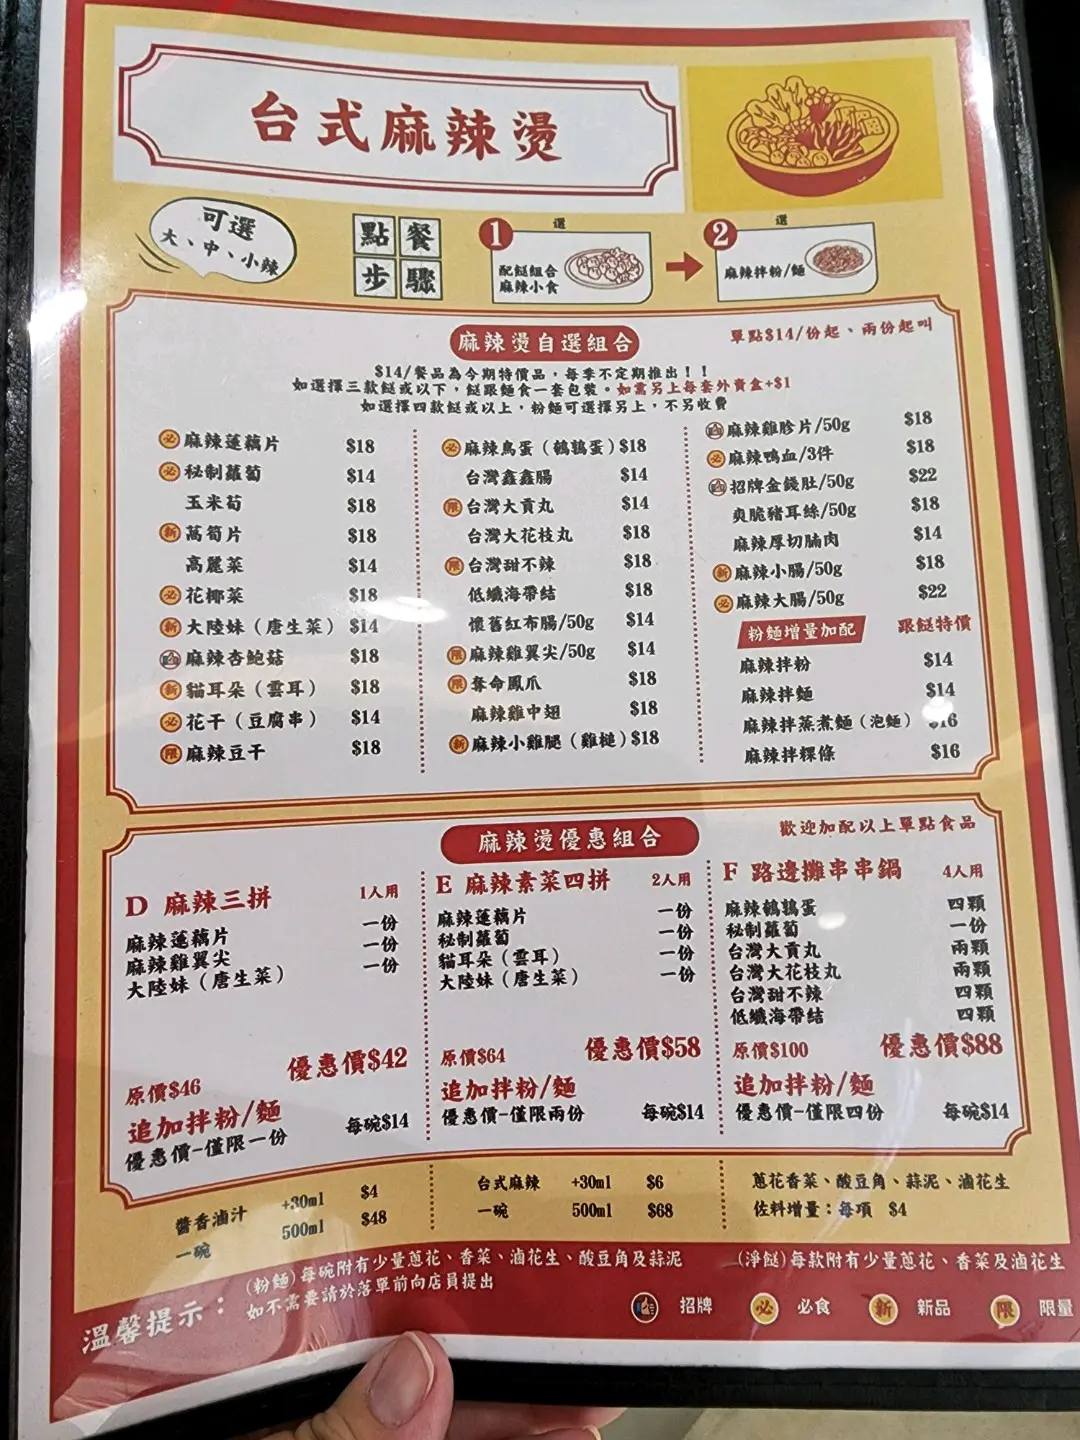 台式麻辣燙
可選
大、中、小辣
點餐
步驟
1 選
配餸組合
麻辣小食
2 選
麻辣拌粉/麵
麻辣燙自選組合
單點$14/份起、兩份起叫
$14/餐品為今期特價品，每季不定期推出！！
如選擇三款餸或以下，餸跟麵食一套包裝。如需另上每套外賣盒+$1
如選擇四款餸或以上，粉麵可選擇另上，不另收費
必 麻辣蓮藕片 $18
必 秘制蘿蔔 $14
玉米荀 $18
新 萵筍片 $18
高麗菜 $14
必 花椰菜 $18
新 大陸妹（唐生菜） $14
麻辣杏鮑菇 $18
新 貓耳朵（雲耳） $18
必 花干（豆腐串） $14
限 麻辣豆干 $18
必 麻辣鳥蛋（鵪鶉蛋） $18
台灣鑫鑫腸 $14
限 台灣大貢丸 $14
台灣大花枝丸 $18
限 台灣甜不辣 $18
低纖海帶結 $18
懷舊紅布腸/50g $14
限 麻辣雞翼尖/50g $14
限 奪命鳳爪 $18
麻辣雞中翅 $18
新 麻辣小雞腿（雞槌） $18
麻辣雞胗片/50g $18
必 麻辣鴨血/3件 $18
招牌金錢肚/50g $22
爽脆豬耳絲/50g $18
麻辣厚切腩肉 $14
新 麻辣小腸/50g $18
必 麻辣大腸/50g $22
粉麵增量加配 跟餸特價
麻辣拌粉 $14
麻辣拌麵 $14
麻辣拌蒸煮麵（泡麵） $16
麻辣拌粿條 $16
麻辣燙優惠組合
歡迎加配以上單點食品
D 麻辣三拼 1人用
麻辣蓮藕片 一份
麻辣雞翼尖 一份
大陸妹（唐生菜） 一份
原價$46 優惠價$42
追加拌粉/麵
優惠價-僅限一份 每碗$14
E 麻辣素菜四拼 2人用
麻辣蓮藕片 一份
秘制蘿蔔 一份
貓耳朵（雲耳） 一份
大陸妹（唐生菜） 一份
原價$64 優惠價$58
追加拌粉/麵
優惠價-僅限兩份 每碗$14
F 路邊攤串串鍋 4人用
麻辣鵪鶉蛋 四顆
秘制蘿蔔 一份
台灣大貢丸 兩顆
台灣大花枝丸 兩顆
台灣甜不辣 四顆
低纖海帶結 四顆
原價$100 優惠價$88
追加拌粉/麵
優惠價-僅限四份 每碗$14
醬香滷汁 +30ml $4
一碗 500ml $48
台式麻辣 +30ml $6
一碗 500ml $68
蔥花香菜、酸豆角、蒜泥、滷花生
佐料增量：每項 $4
溫馨提示：
(粉麵)每碗附有少量蔥花、香菜、滷花生、酸豆角及蒜泥
如不需要請於落單前向店員提出
(淨餸)每款附有少量蔥花、香菜及滷花生
招牌 必 必食 新 新品 限 限量